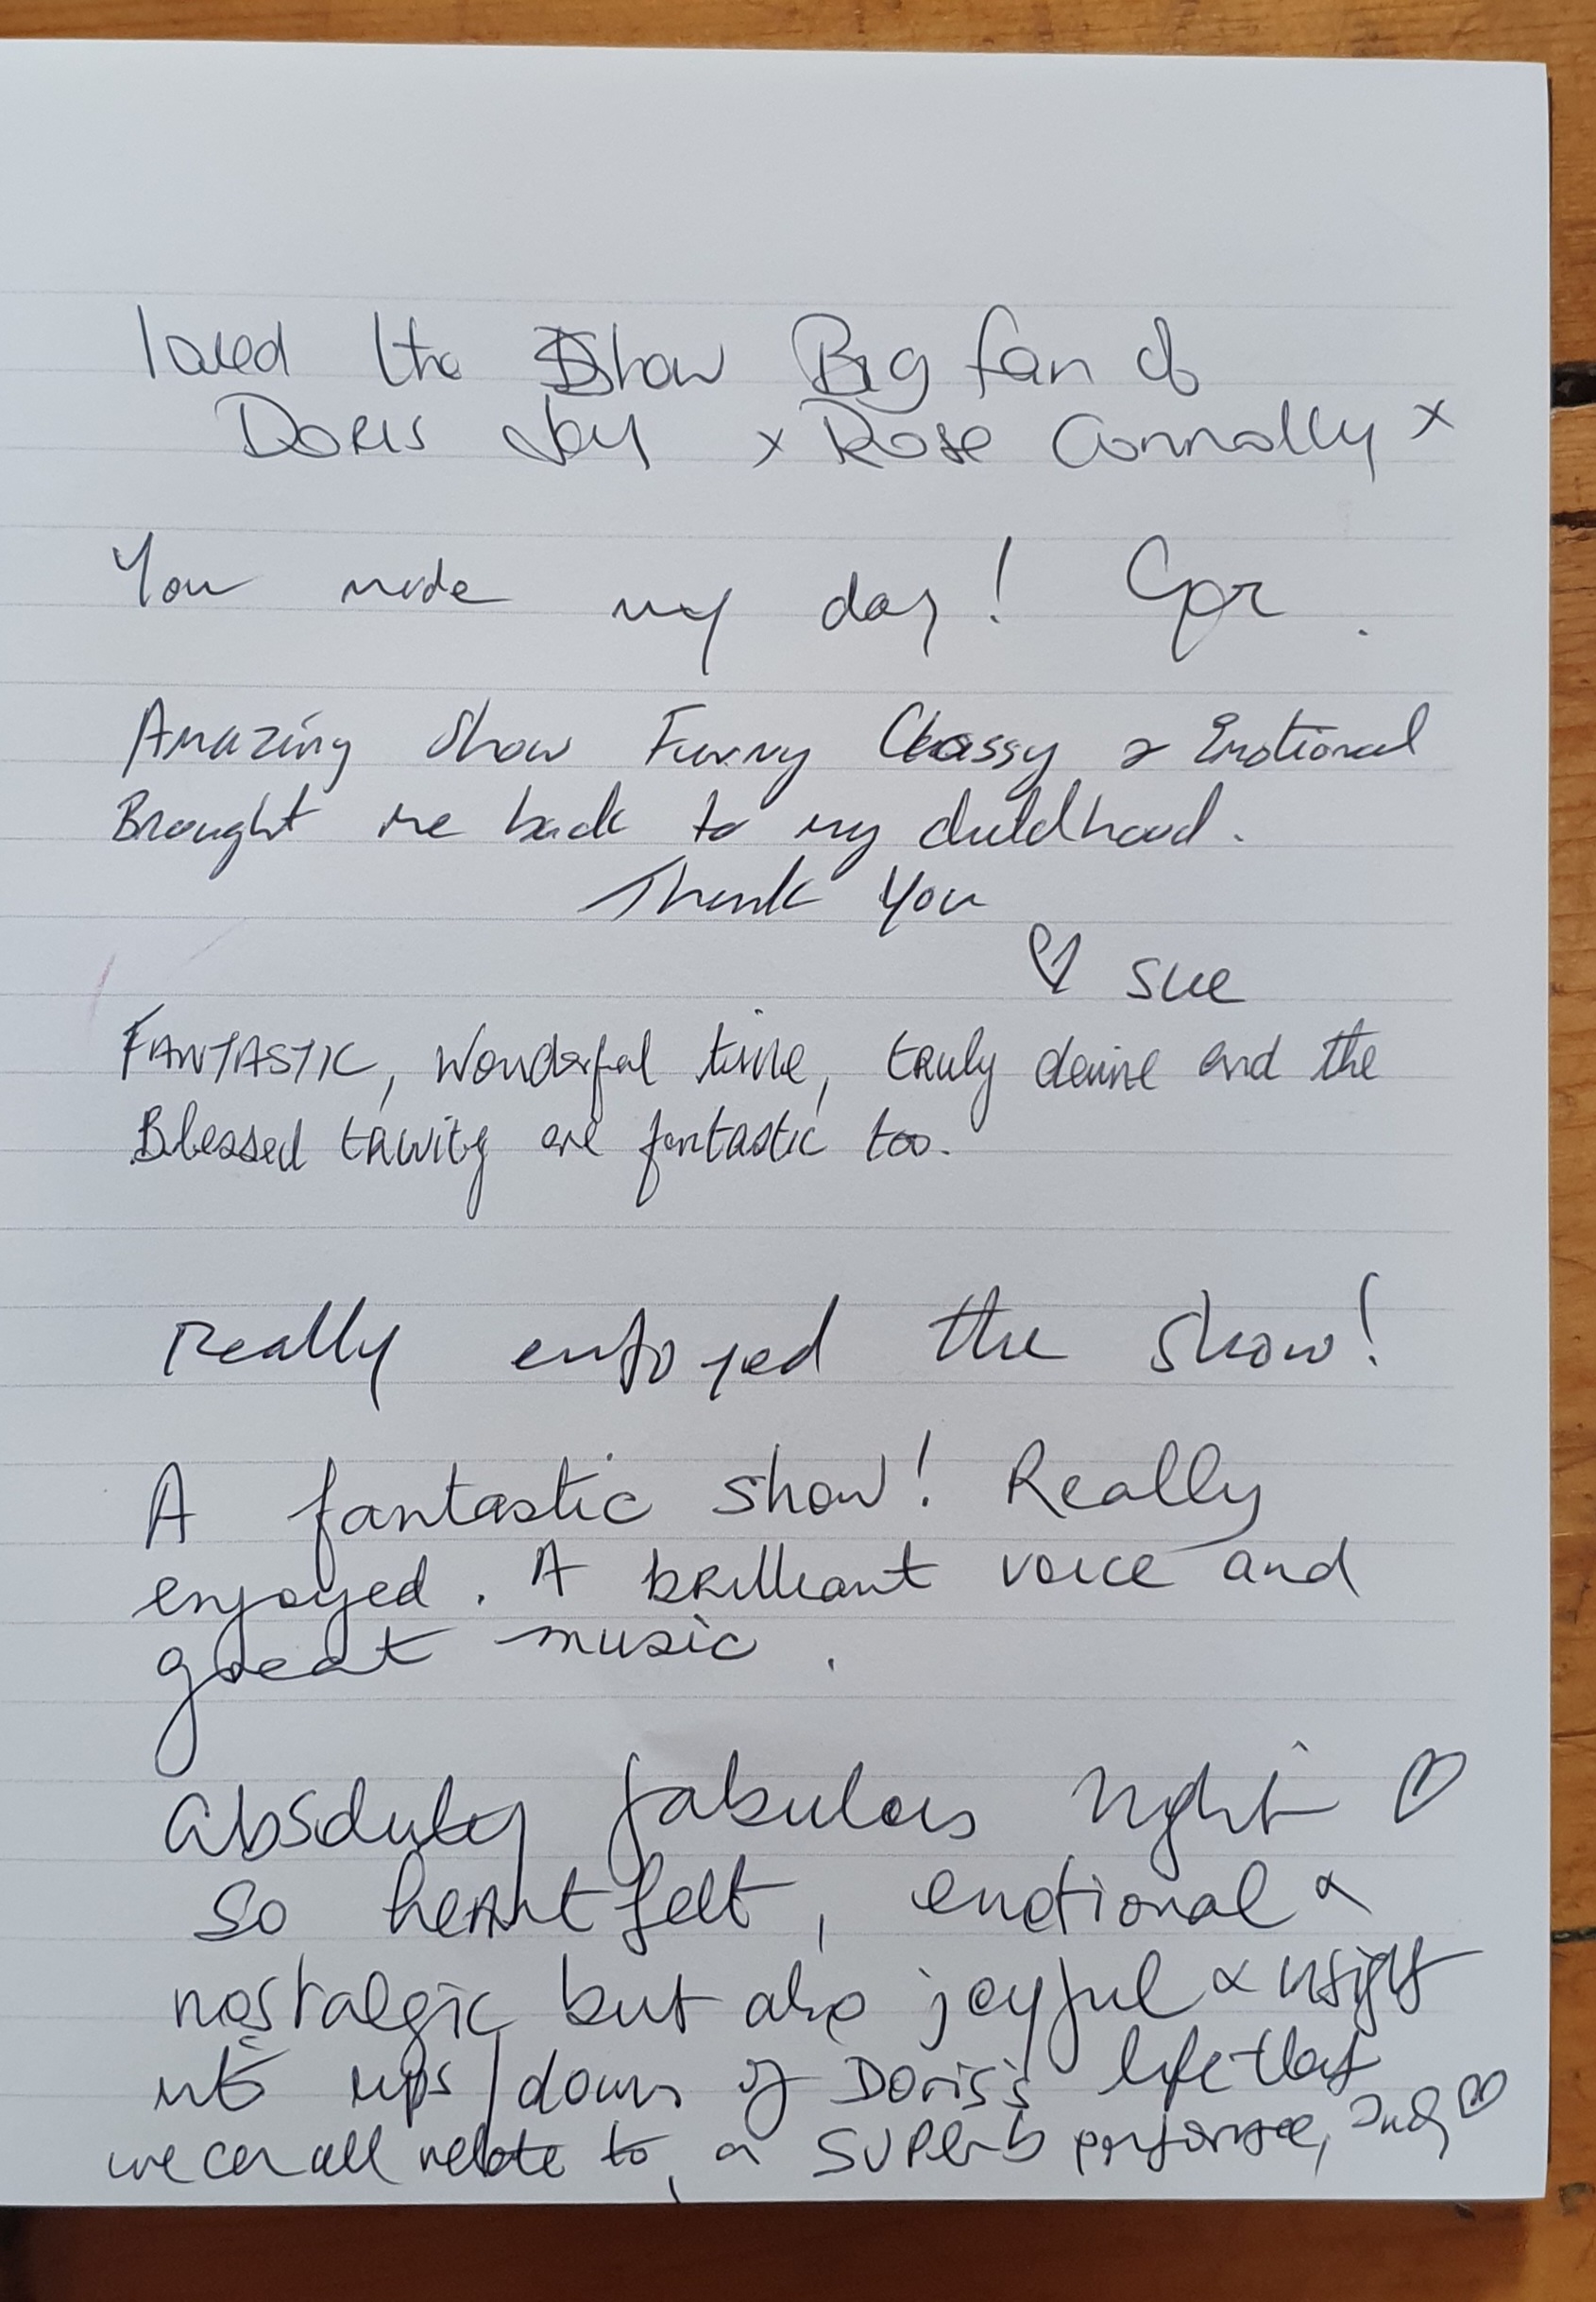 loved the Show Big fan of
Doris Day x Rose Connolly x
You made my day!
Amazing Show Funny Classy & Emotional
Brought me back to my childhood.
Thank You
♡ Sue
FANTASTIC, Wonderful time, truly devine and the
Blessed trinity are fantastic too.
Really enjoyed the show!
A fantastic show! Really
enjoyed. A brilliant voice and
great music.
Absolutely fabulous night ♡
So heartfelt, emotional &
nostalgic but also joyful & insight
into ups/downs of Doris's life that
we can all relate to, a SUPERb performance, ♡